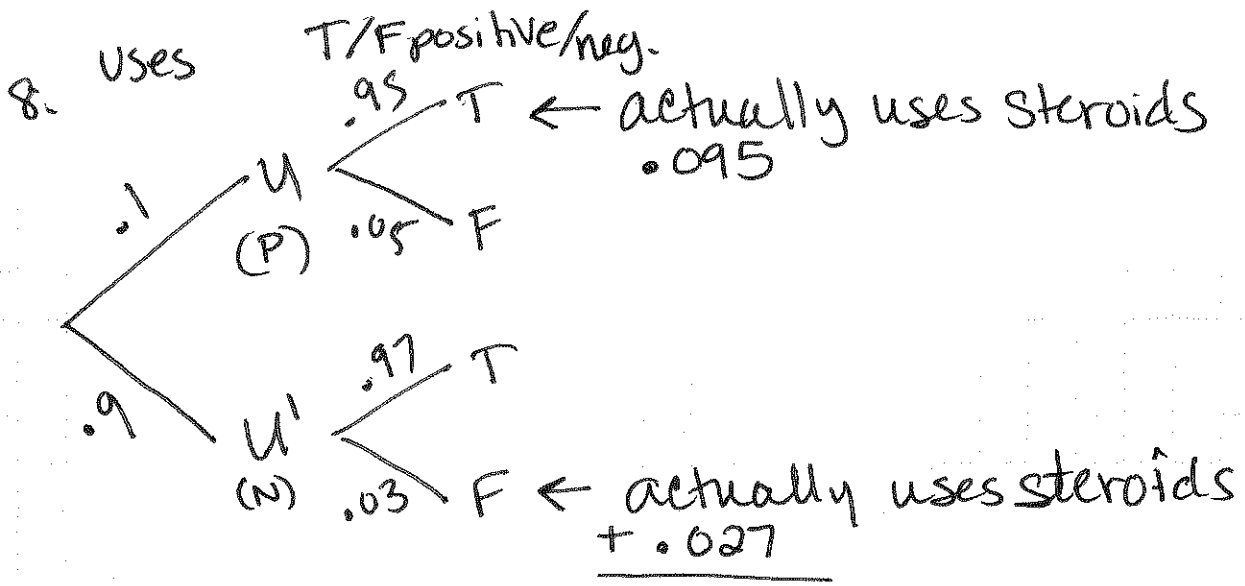 8. uses T/F positive/neg.
.95 T ← actually uses steroids
.095
.1 U
(P) .05 F
.97 T
.9 U'
(N) .03 F ← actually uses steroids
+ .027